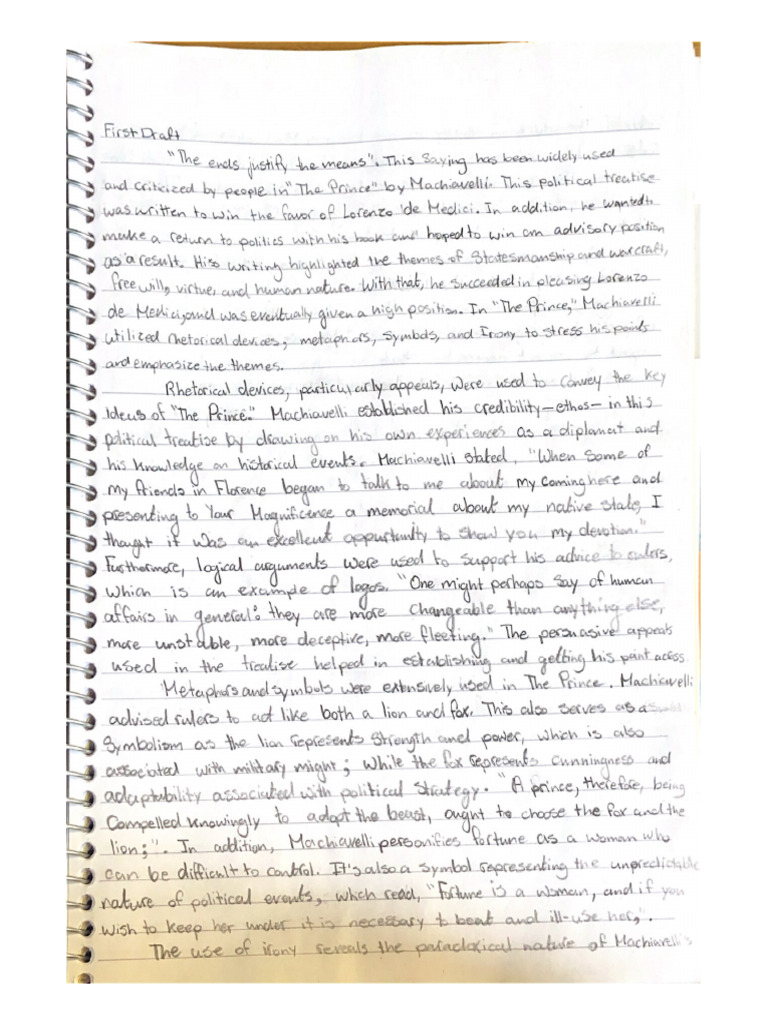 First Draft
"The ends justify the means". This saying has been widely used
and criticized by people in "The Prince" by Machiavelli. This political treatise
was written to win the favor of Lorenzo 'de Medici. In addition, he wanted to
make a return to politics with his book and hoped to win an advisory position
as a result. His writing highlighted the themes of Statesmanship and warcraft,
free will, virtue, and human nature. With that, he succeeded in pleasing Lorenzo
de Medici, and was eventually given a high position. In "The Prince," Machiavelli
utilized rhetorical devices; metaphors, symbols, and Irony to stress his points
and emphasize the themes.
Rhetorical devices, particularly appeals, were used to convey the key
ideas of "The Prince." Machiavelli established his credibility—ethos—in this
political treatise by drawing on his own experiences as a diplomat and
his knowledge on historical events. Machiavelli stated, "When some of
my friends in Florence began to talk to me about my coming here and
presenting to Your Magnificence a memorial about my native state, I
thought it was an excellent oppurtunity to show you my devotion."
Furthermore, logical arguments were used to support his advice to rulers,
which is an example of logos. "One might perhaps say of human
affairs in general: they are more changeable than anything else,
more unstable, more deceptive, more fleeting." The persuasive appeals
used in the treatise helped in establishing and getting his point across.
Metaphors and symbols were extensively used in The Prince. Machiavelli
advised rulers to act like both a lion and fox. This also serves as a
Symbolism as the lion represents strength and power, which is also
associated with military might; while the fox represents cunningness and
adaptability associated with political strategy. "A prince, therefore, being
compelled knowingly to adopt the beast, ought to choose the fox and the
lion;". In addition, Machiavelli personifies fortune as a woman who
can be difficult to control. It's also a symbol representing the unpredictable
nature of political events, which read, "Fortune is a woman, and if you
wish to keep her under it is necessary to beat and ill-use her,".
The use of irony reveals the paradoxical nature of Machiavelli's